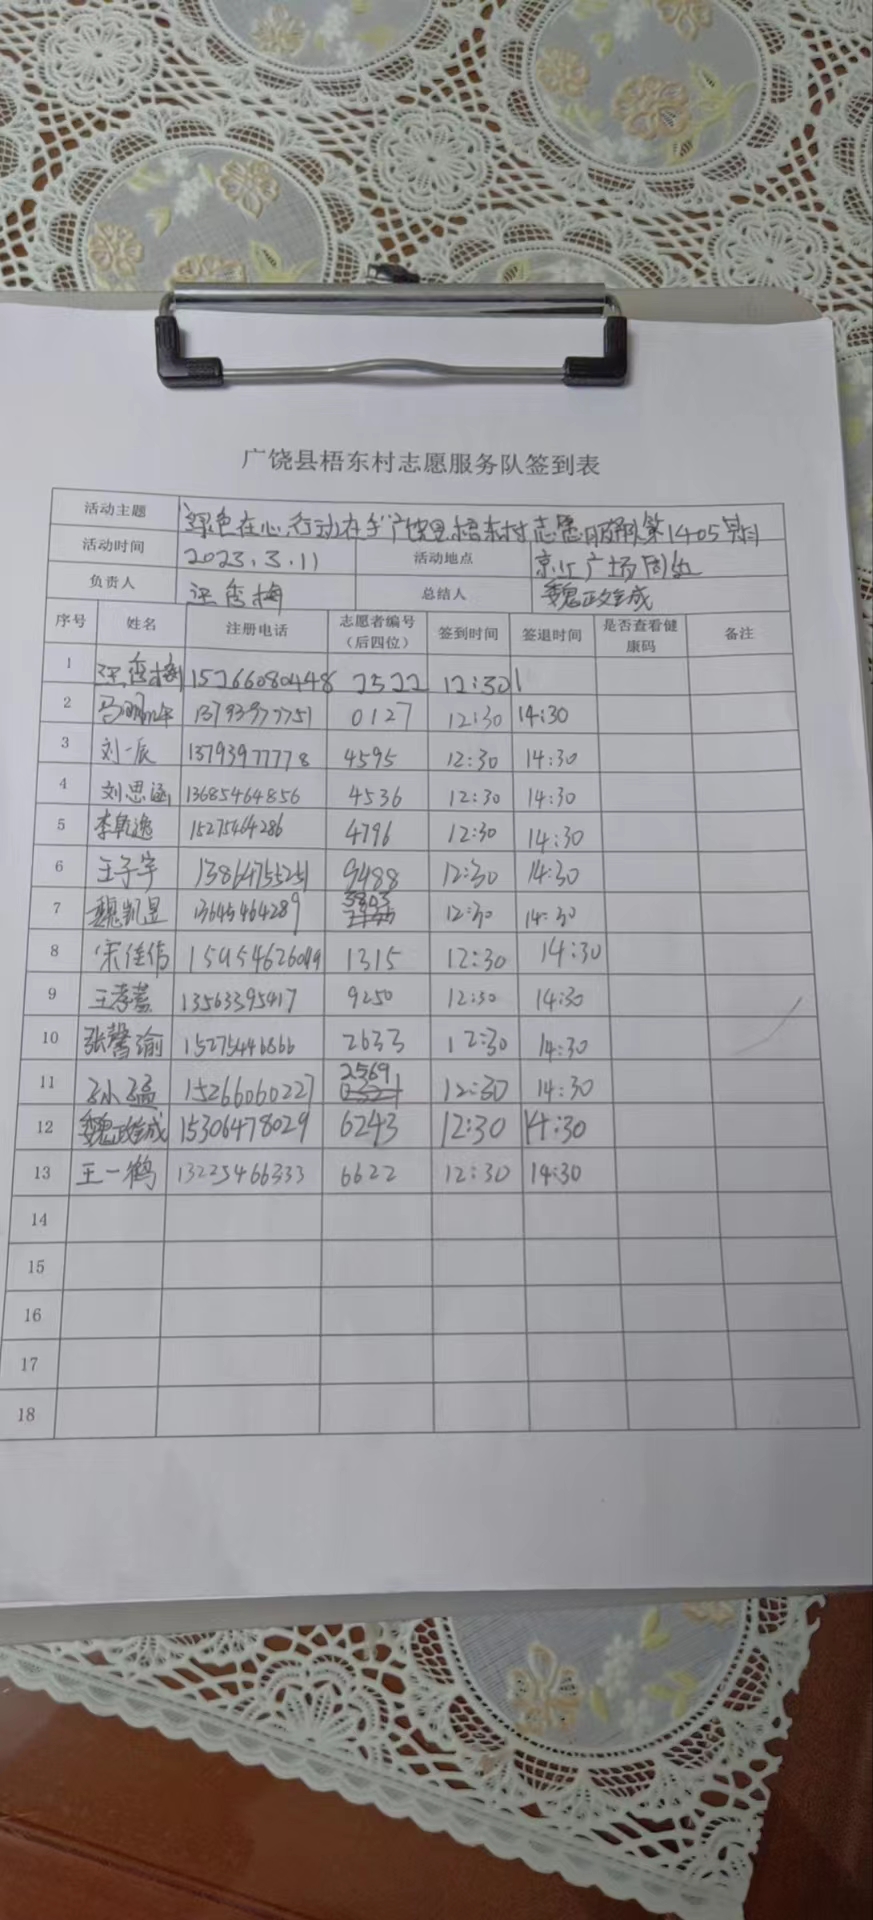 广饶县梧东村志愿服务队签到表
活动主题 绿色在心,行动在手"广饶县梧东村志愿服务队第1405期
活动时间 2023.3.11 活动地点 广场周边
负责人 汪秀梅 总结人 魏政铖
序号 姓名 注册电话 志愿者编号（后四位） 签到时间 签退时间 是否查看健康码 备注
1 汪秀梅 15266080448 2522 12:30
2 13793977751 0127 12:30 14:30
3 刘一辰 13793977778 4595 12:30 14:30
4 刘思涵 13685464856 4536 12:30 14:30
5 李乾逸 15275464286 4796 12:30 14:30
6 王子宇 13864755251 9488 12:30 14:30
7 魏凯昱 13645464289 3803 12:30 14:30
8 宋佳倍 1315 12:30 14:30
9 13563395917 9250 12:30 14:30
10 张馨瑜 15275446866 2633 12:30 14:30
11 孙孟 15266060227 2569 12:30 14:30
12 魏政铖 15306478029 6243 12:30 14:30
13 王一鹤 13225466333 6622 12:30 14:30
14
15
16
17
18